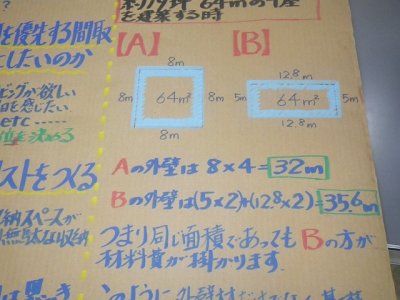 を優先する間取
にしたいのか
ビングが欲しい
を感じたい.
etc ‥‥‥
を決める
ストをつくる
納スペースが
無駄な収納
64㎡の平屋
を建築する時
【A】
8m
8m
64㎡
8m
8m
【B】
12.8m
5m
64㎡
5m
12.8m
Aの外壁は 8×4=32m
Bの外壁は(5×2)+(12.8×2)=35.6m
つまり同じ面積であってもBの方が
材料費が掛かります.